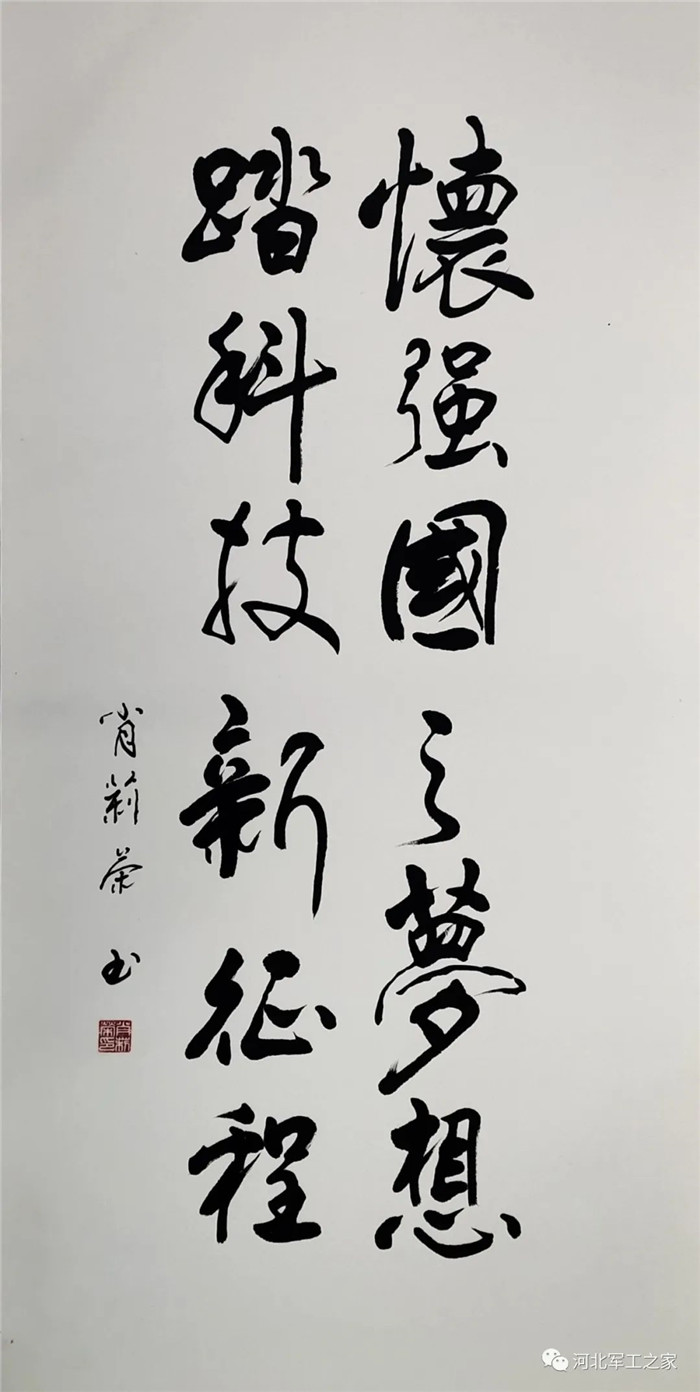 懷强國之夢想
踏科技新征程
肖莉荣书
河北军工之家